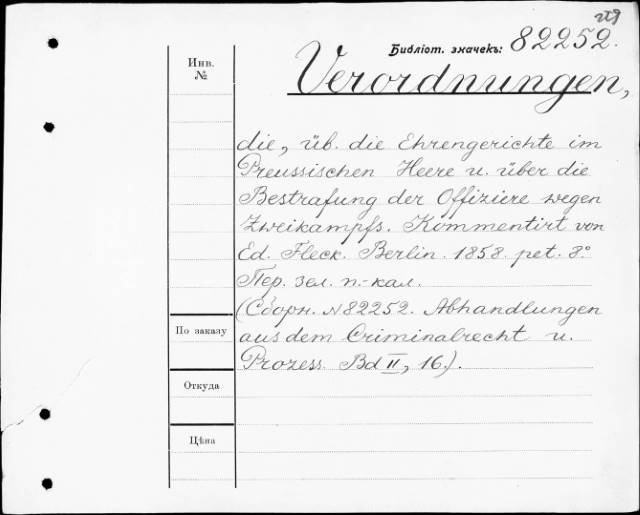 Библіот. значекъ: 82252.
Verordnungen,
Инв.
№
die, üb. die Ehrengerichte im
Preussischen Heere u. über die
Bestrafung der Offiziere wegen
Zweikampfs. Kommentirt von
Ed. Fleck. Berlin. 1858. pet. 8°
Пер. зел. п.-кал.
(Сборн. № 82252. Abhandlungen
aus dem Criminalrecht u.
Prozess. Bd II, 16.).
По заказу
Откуда
Цѣна